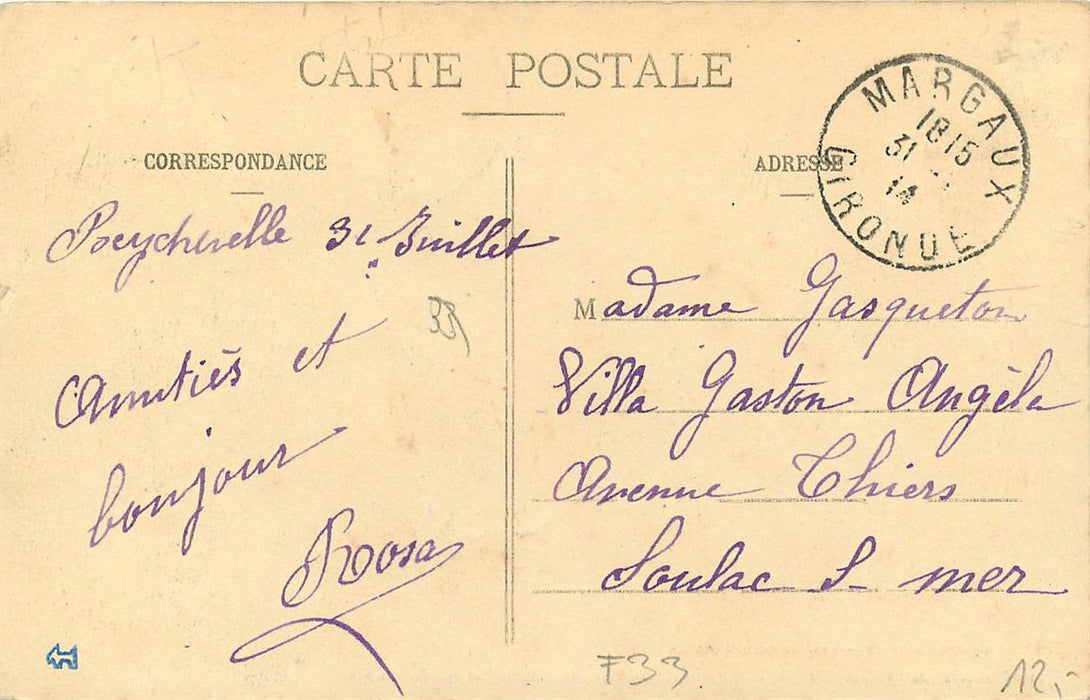 CARTE POSTALE
CORRESPONDANCE
ADRESSE
MARGAUX
18 15
31
14
GIRONDE
31 Juillet
Amitiés et
bonjour
Rosa
Madame Gasqueton
Villa Gaston Angèla
Avenue Thiers
Soulac S- mer
33
F33
12,-